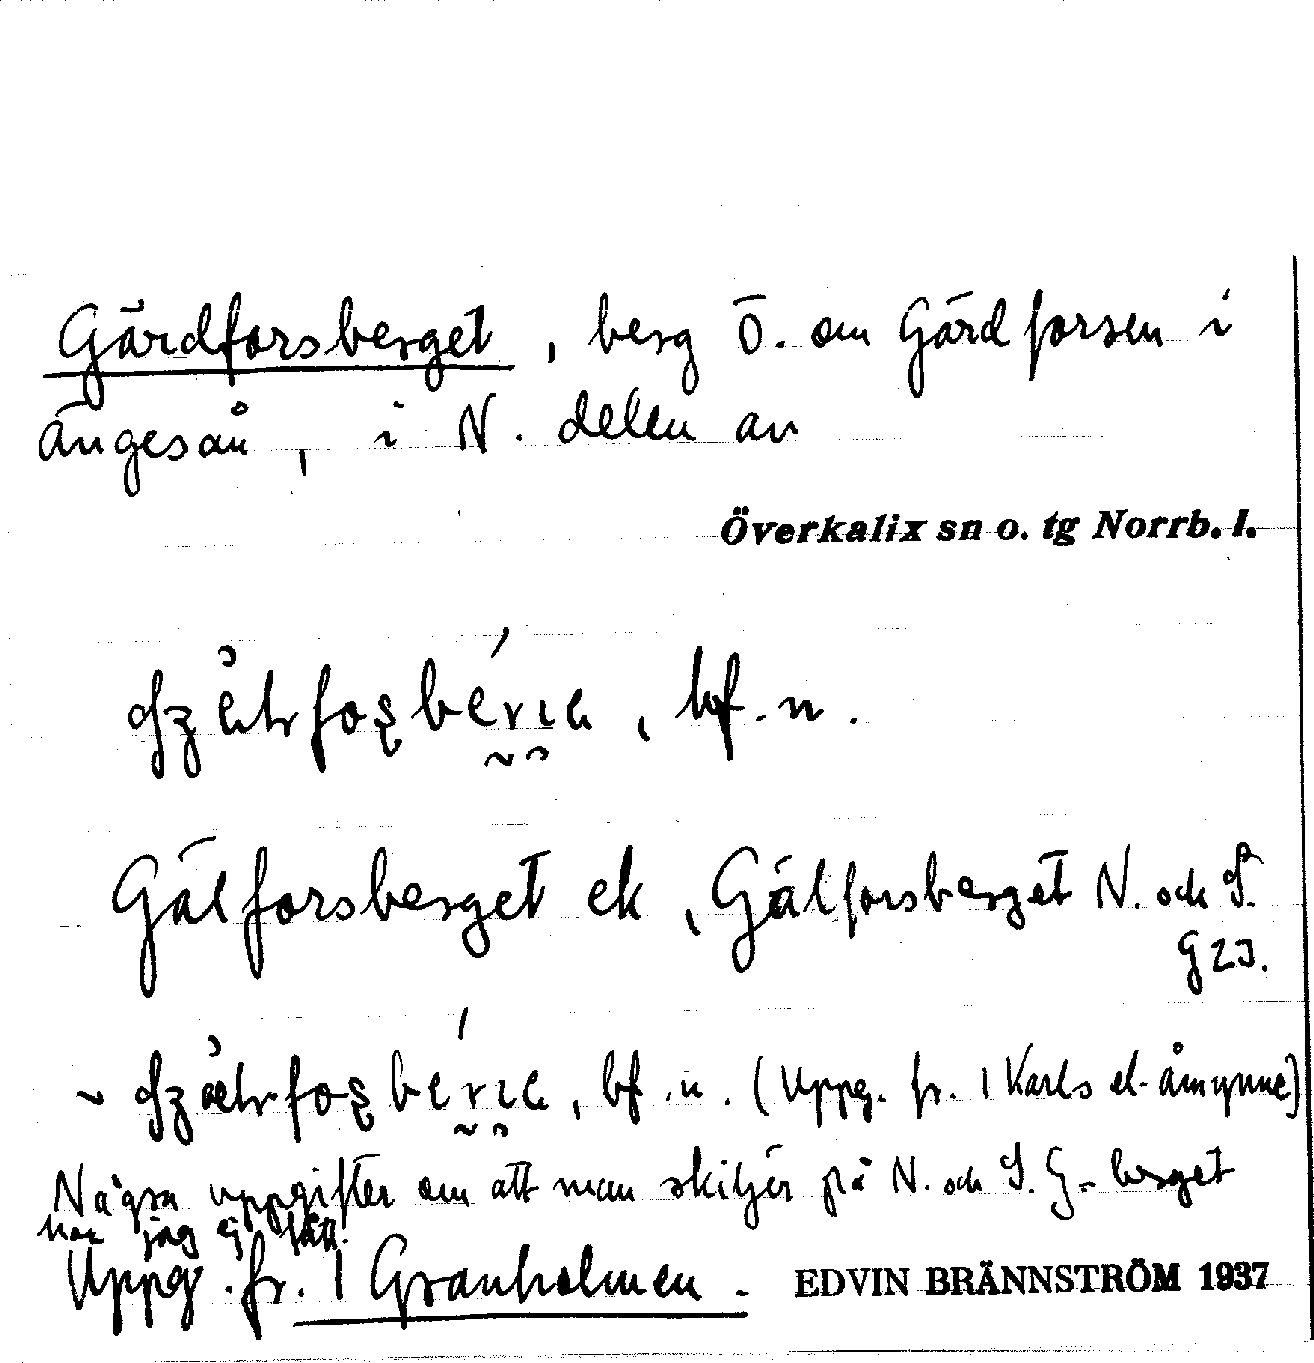 Gärdforsberget, berg Ö. om Gärdforsen i
Ängesån, i N. delen av
Överkalix sn o. tg Norrb. l.
bf. n.
Gälforsberget ek, Gälforsberget N. och S.
G 23.
~ bf. n. (Uppg. fr. 1 Karlsel-åmynne)
Några uppgifter om att man skiljer på N. och S. G-berget
har jag ej fått.
Uppg. fr. 1 Granholmen.
EDVIN BRÄNNSTRÖM 1937